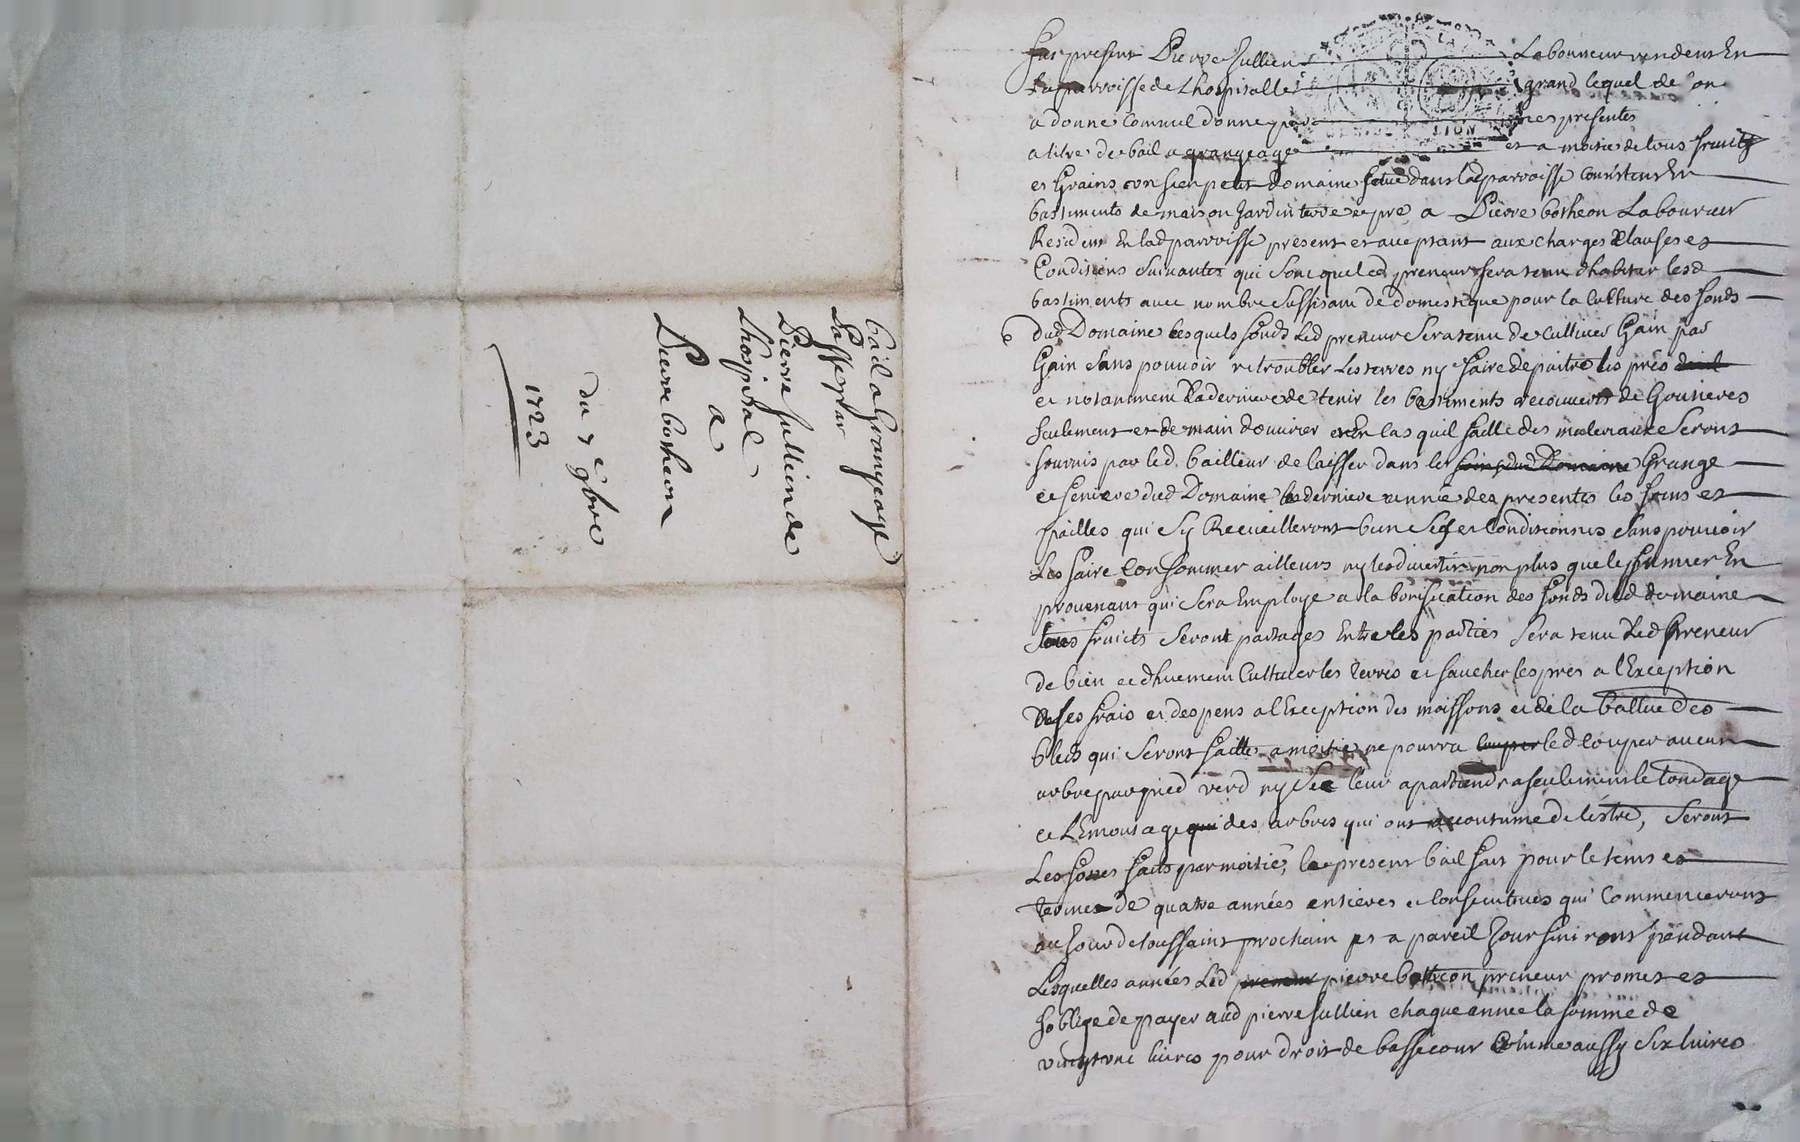 bail a Grangeage
passé par
Pierre Jullien de
Lhospital
a
Pierre botheon
du 7e 9bre
1723
Fut present Pierre Jullien Laboureur residant En
la parroisse de Lhospitalle grand lequel de
a donné comme il donne par ces presentes
a titre de bail a grangeage et a moitié de tous fruitz
et Grains un sien petit domaine situé dans lad parroisse consistant En
bastiments de maison Jardin terre et pré a Pierre botheon Laboureur
Resident En lad parroisse present et aceptant aux charges Clauses et
Conditions Suivantes qui sont que led preneur sera tenu dhabiter lesd
bastiments avec nombre suffisant de domestique pour la culture des fonds
dud Domaine lesquels fonds Led preneur Sera tenu de cultiver Gain par
Gain sans pouvoir retroubler Les terres ny faire depaitre les prés
et notamment La derniere de tenir les bastiments recouverts de Goutieres
seulement et de main douvrier et En cas quil faille des materiaux Seront
fournis par led. bailleur de laisser dans les foins dud Domaine Grange
et feniere dud Domaine la derniere année des presentes les foins et
pailles qui sy Recueilleront bien Secs et Conditionnés Sans pouvoir
Les faire consommer ailleurs ny les divertir non plus que le fumier En
provenant qui Sera Employé a la bonification des fonds dud domaine
tous fruicts Seront partagés Entre les parties Sera tenu Led preneur
de bien et dhuement Cultiver les terres et faucher les prés a l'Exception
de ses frais et despens a l'Exception des moissons et de la battue des
bleds qui Seront faittes a moitié ne pourra couper led couper aucun
arbre par pied verd ny Sec leur apartiendra seulement le tondage
et LEmontage qui des arbres qui ont accoutumé de lestre, Seront
Les fossés faits par moitié, le present bail fait pour le tems et
terme de quatre années entieres et consecutives qui Commenceront
au Jour de toussaint prochain et a pareil Jour finiront pendant
Lesquelles années Led preneur pierre botheon preneur promet et
soblige de payer aud pierre Jullien chaque année la somme de
vingt une livres pour droit de basse cour Comme aussy Six livres